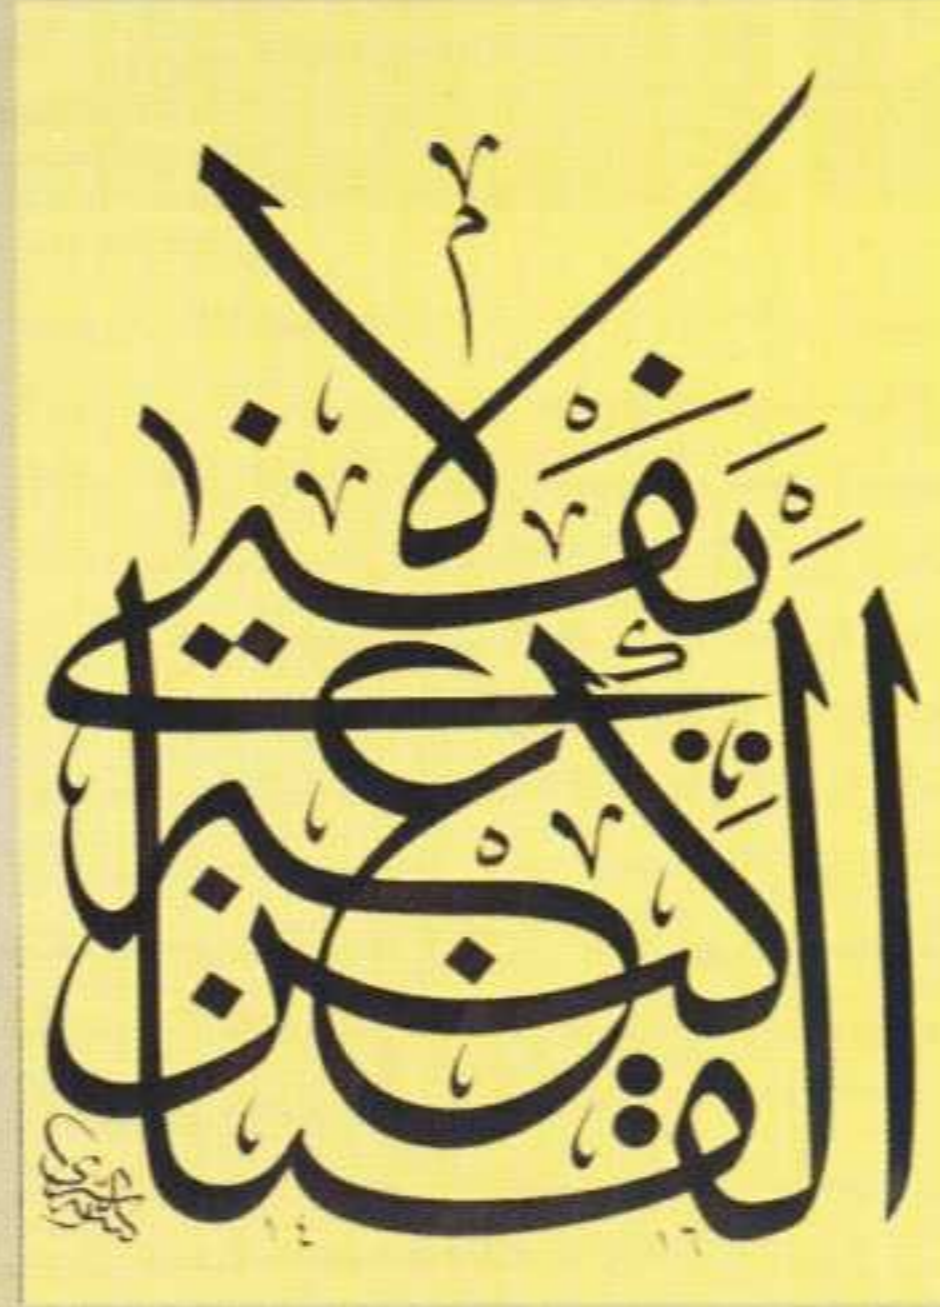 القناعة كنز لا يفنى
١٤ ١٦